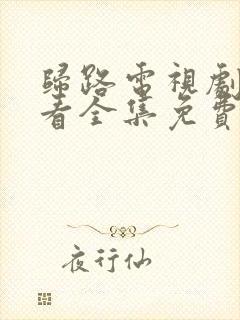 歸路電視劇
看全集免費
夜行仙